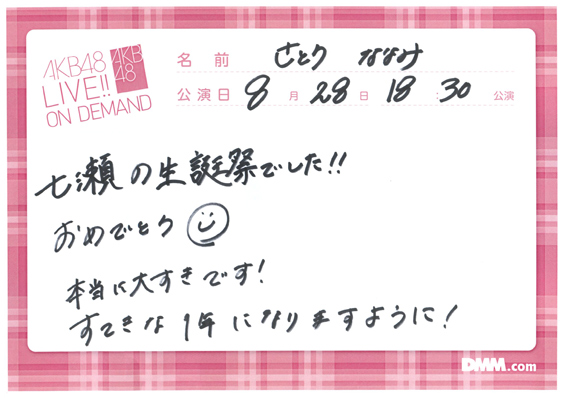 AKB48
LIVE!!
ON DEMAND
AKB
48
名前 さとう ななみ
公演日 8月28日 18:30 公演
七瀬の生誕祭でした!!
おめでとう
本当に大すきです!
すてきな1年になりますように!
DMM.com